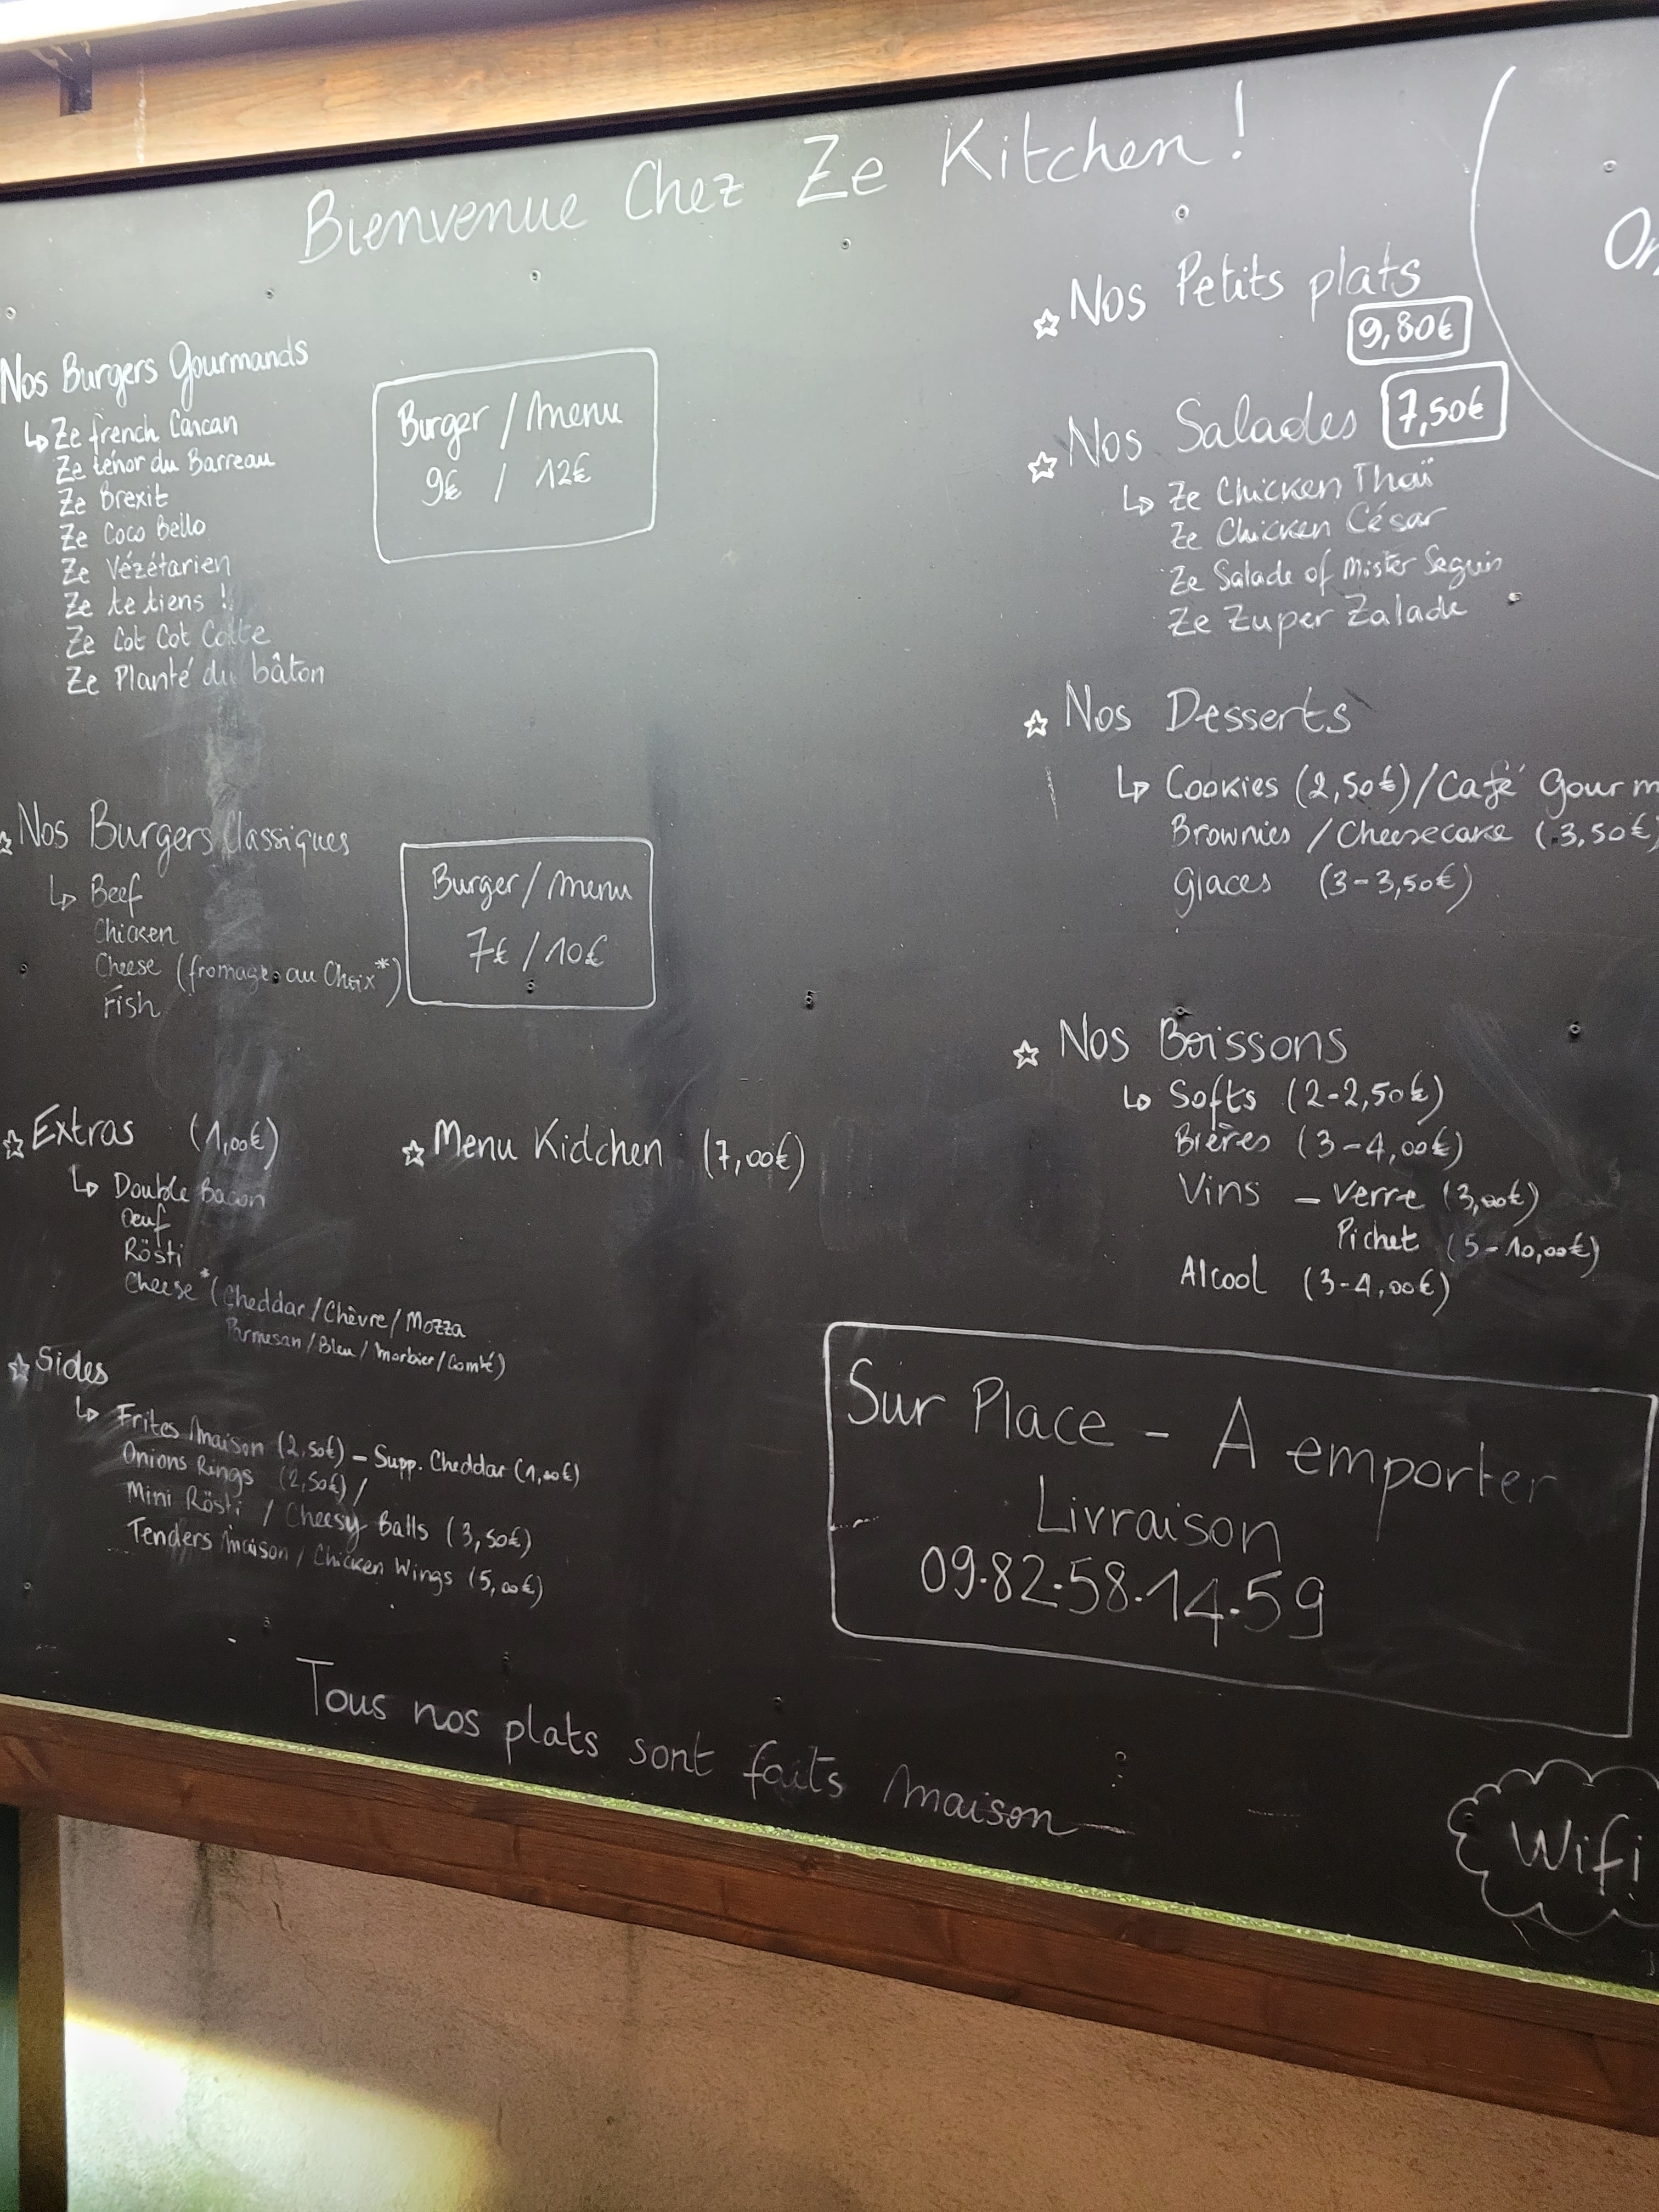 Bienvenue Chez Ze Kitchen !
Nos Burgers Gourmands
Ze french Cancan
Ze ténor du Barreau
Ze Brexit
Ze Coco Bello
Ze Vézétarien
Ze te tiens !
Ze Cot Cot Cotte
Ze Planté du bâton
Burger / Menu
9€ / 12€
Nos Burgers Classiques
Beef
Chicken
Cheese (fromage au Choix*)
Fish
Burger / Menu
7€ / 10€
Extras (1,00€)
Double Bacon
Oeuf
Rösti
Cheese* (Cheddar / Chèvre / Mozza
Parmesan / Bleu / Morbier / Comté)
Menu Kidchen (7,00€)
Sides
Frites maison (2,50€) – Supp. Cheddar (1,00€)
Onions Rings (2,50€) /
Mini Rösti / Cheesy Balls (3,50€)
Tenders maison / Chicken Wings (5,00€)
Nos Petits plats
9,80€
Nos Salades 7,50€
Ze Chicken Thaï
Ze Chicken César
Ze Salade of Mister Seguin
Ze Zuper Zalade
Nos Desserts
Cookies (2,50€) / Café Gourm
Brownies / Cheesecake (3,50€)
Glaces (3-3,50€)
Nos Boissons
Softs (2-2,50€)
Bières (3-4,00€)
Vins – Verre (3,00€)
Pichet (5-10,00€)
Alcool (3-4,00€)
Sur Place - A emporter
Livraison
09.82.58.14.59
Tous nos plats sont faits maison
Wifi